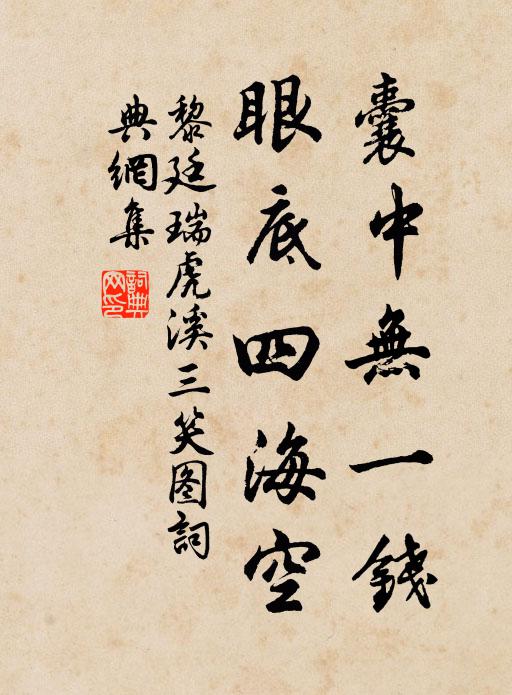 囊中無一錢
眼底四海空
黎廷瑞虎溪三笑图詞
典網集
詞典网印